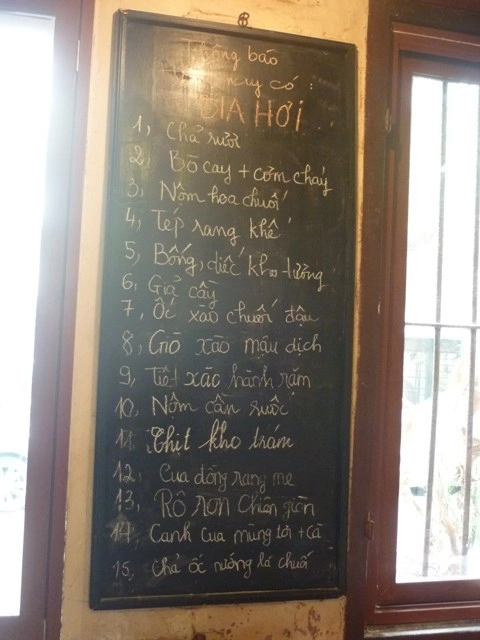 Thông báo
nay có :
BIA HƠI
1, Chả rươi
2, Bò cay + cơm cháy
3, Nộm hoa chuối
4, Tép rang khế
5, Bống, diếc kho tương
6, Giả cầy
7, Ốc xào chuối đậu
8, Giò xào mậu dịch
9, Tiết xào hành răm
10, Nộm cần ruốc
11, Thịt kho trám
12, Cua đồng rang me
13, Rô ron chiên giòn
14, Canh cua mùng tơi + cà
15, Chả ốc nướng lá chuối